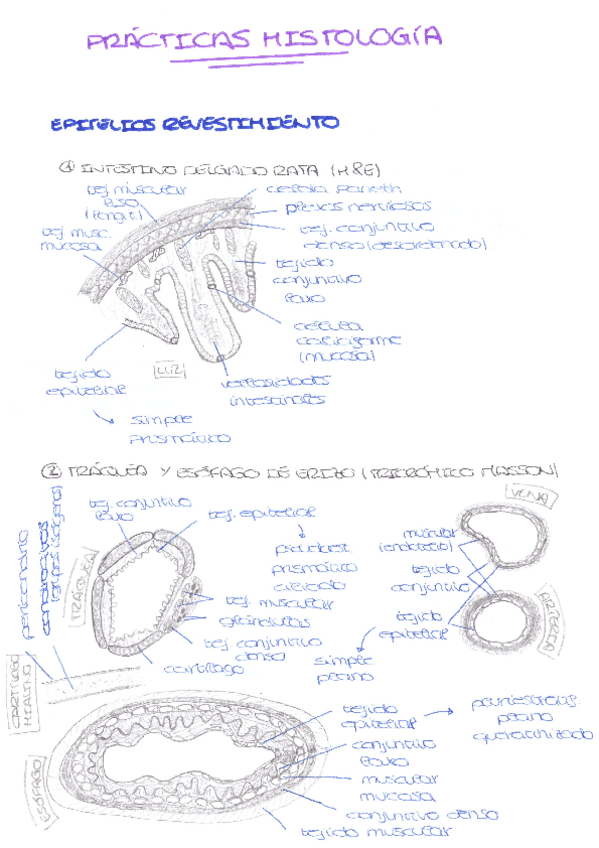 PRÁCTICAS HISTOLOGÍA
EPITELIOS REVESTIMIENTO
① INTESTINO DELGADO RATA (H&E)
tej muscular
liso
(longit.)
tej musc.
mucosa
célula Paneth
plexos nerviosos
tej. conjuntivo
denso (desordenado)
tejido
conjuntivo
laxo
célula
caliciforme
(mucosa)
vellosidades
intestinales
LUZ
tejido
epitelial
simple
prismático
② TRÁQUEA Y ESÓFAGO DE ERIZO (TRICRÓMICO MASSON)
pericondrio
condrocitos
(grupos isógenos)
TRÁQUEA
tej. conjuntivo
laxo
tej. epitelial
pseudoest.
prismático
ciliado
tej muscular
glándulas
tej conjuntivo
denso
cartílago
VENA
muscular
(endotelio)
tejido
conjuntivo
tejido
epitelial
simple
plano
ARTERIA
CARTÍLAGO
HIALINO
ESÓFAGO
tejido
epitelial
pluriestratif.
plano
queratinizado
conjuntivo
laxo
muscular
mucosa
conjuntivo denso
tejido muscular